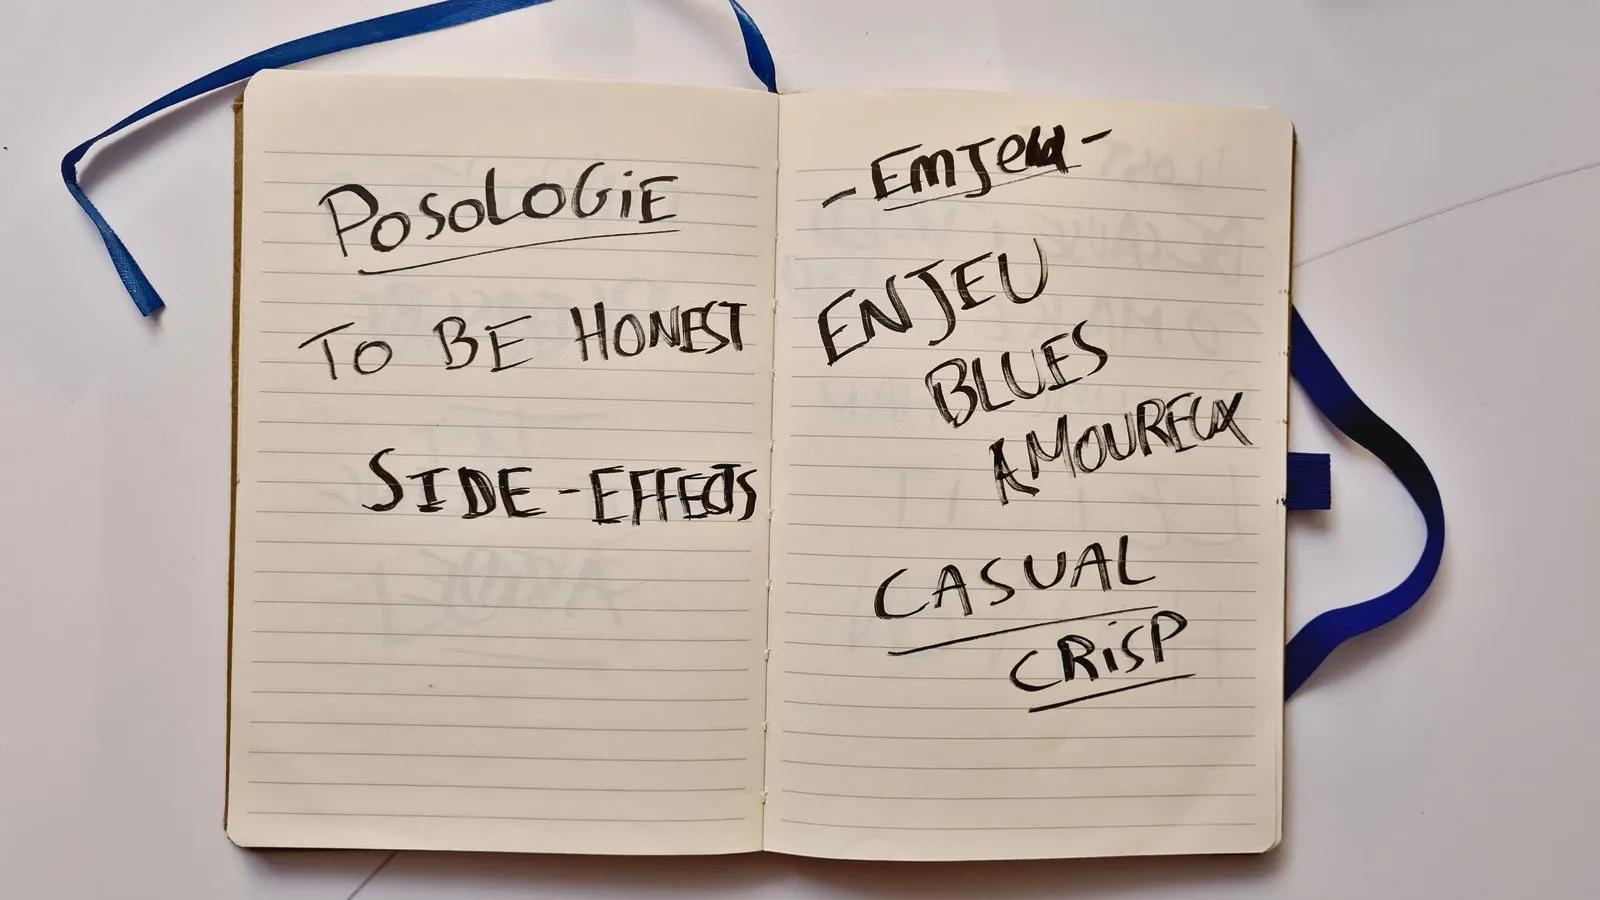 POSOLOGIE
TO BE HONEST
SIDE-EFFECTS
ENJEU
BLUES
AMOUREUX
CASUAL
CRISP